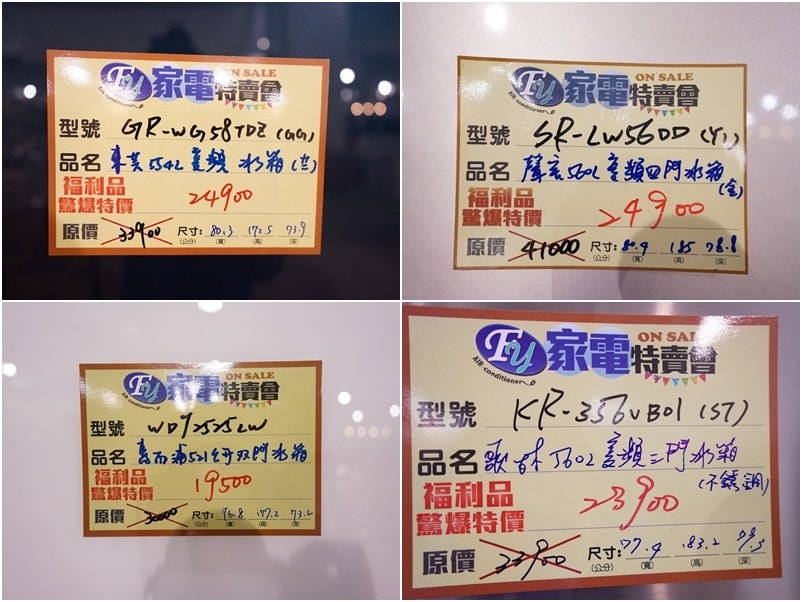 Fy 家電特賣會 ON SALE
AIR-conditioner
型號 GR-WG58TDZ (GG)
品名 東芝554L變頻 冰箱
福利品
驚爆特價 24900
原價 33900 尺寸: 80.3 172.5 73.9
(公分) (寬) (高) (深)
Fy 家電特賣會 ON SALE
AIR-conditioner
型號 SR-LW56DD (Y1)
品名 聲寶560L變頻四門冰箱
(金)
福利品
驚爆特價 24900
原價 41000 尺寸: 80.9 185 78.8
(公分) (寬) (高) (深)
Fy 家電特賣會 ON SALE
AIR-conditioner
型號 WD92525LW
品名 惠而浦521公升双門冰箱
福利品
驚爆特價 19500
原價 30000 尺寸: 76.8 177.2 73.2
(公分) (寬) (高) (深)
Fy 家電特賣會 ON SALE
AIR-conditioner
型號 KR-356VB01 (ST)
品名 歌林560L變頻三門冰箱
(不銹鋼)
福利品
驚爆特價 23900
原價 33900 尺寸: 77.4 183.2
(公分) (寬) (高) (深)